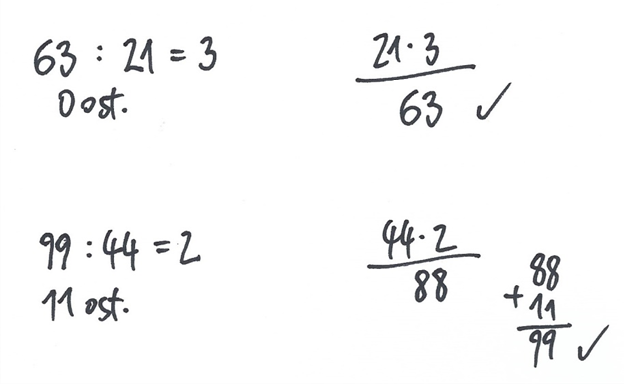 63 : 21 = 3
0 ost.
21 · 3
63 ✓
99 : 44 = 2
11 ost.
44 · 2
88
88
+ 11
99 ✓